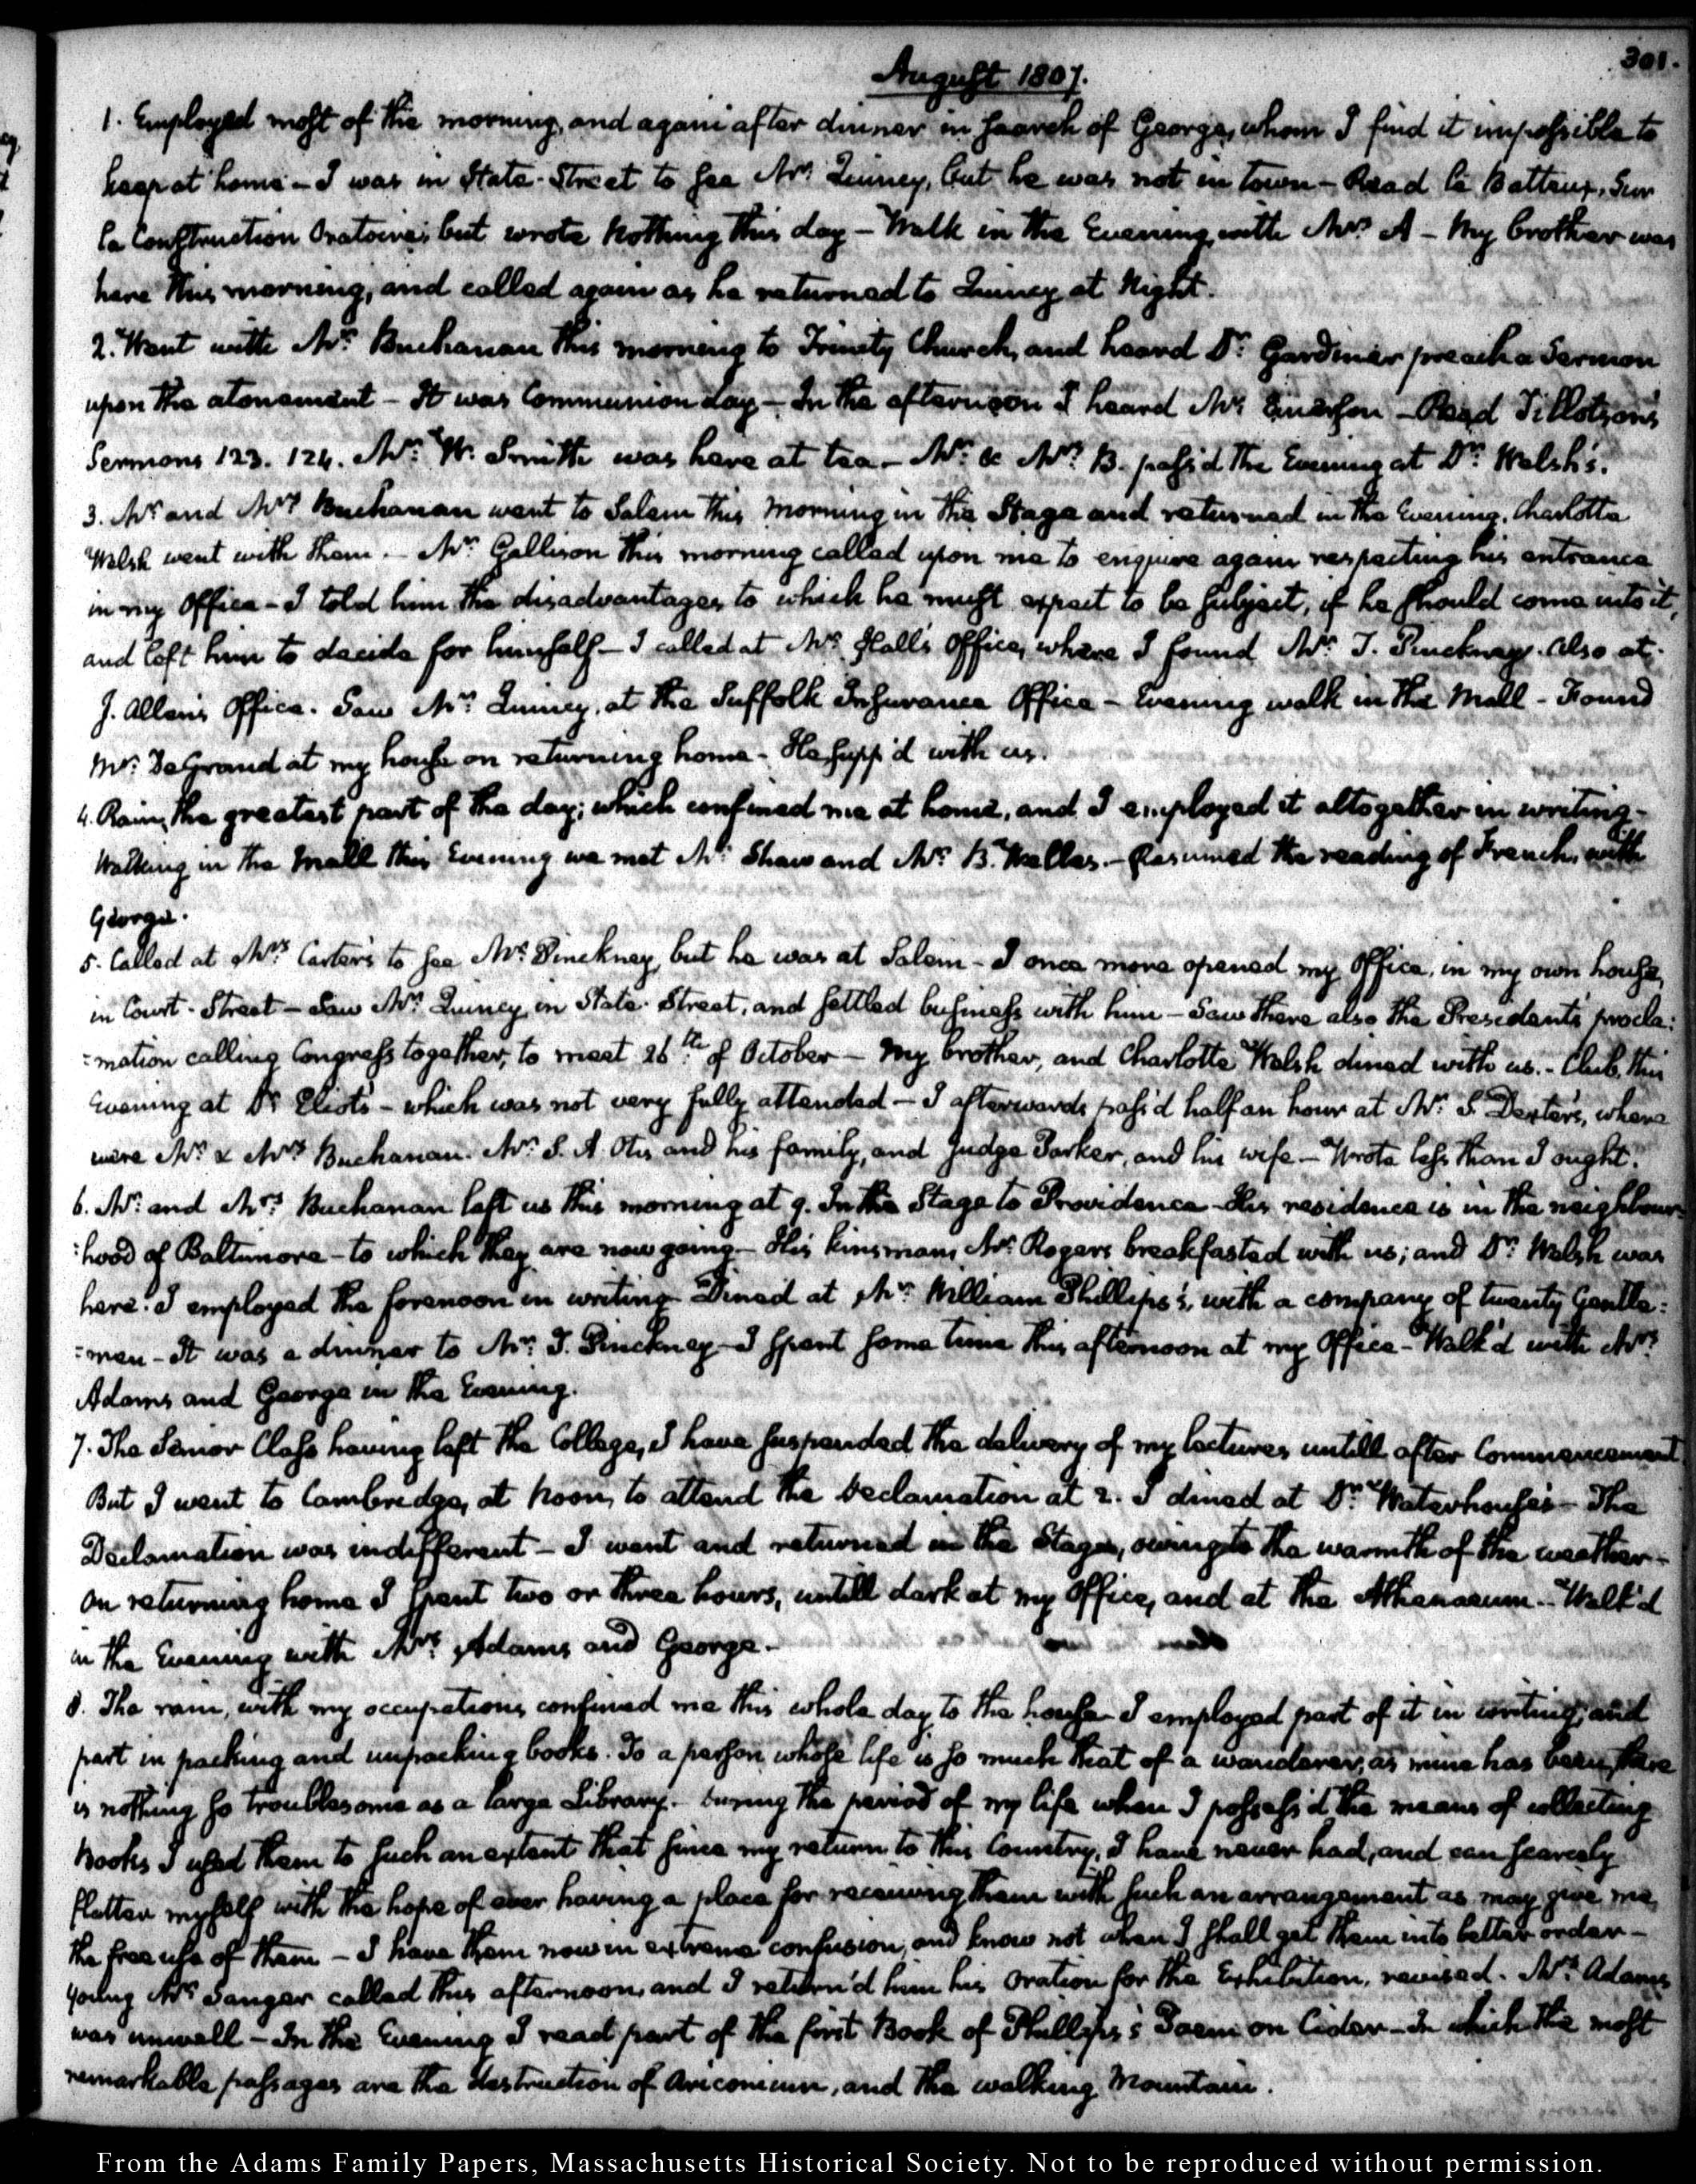 301.
August 1807.
1. Employed most of the morning, and again after dinner in search of George, whom I find it impossible to
keep at home – I was in State-Street to see Mr. Quincy, but he was not in town – Read Le Batteux, Sur
la Construction Oratoire; but wrote nothing this day – Walk in the Evening with Mrs. A – My brother was
here this morning, and called again as he returned to Quincy at Night.
2. Went with Mr. Buchanan this morning to Trinity Church, and heard Dr. Gardiner preach a Sermon
upon the atonement – It was Communion day – In the afternoon I heard Mr. Emerson – Read Tillotson's
Sermons 123. 124. Mr. W. Smith was here at tea – Mr. & Mrs. B. pass'd the Evening at Dr. Welsh's.
3. Mr. and Mrs. Buchanan went to Salem this Morning in the Stage and returned in the Evening. Charlotte
Welsh went with them. – Mr. Gallison this morning called upon me to enquire again respecting his entrance
in my Office – I told him the disadvantages to which he must expect to be subject, if he should come into it,
and left him to decide for himself – I called at Mr. Hall's Office, where I found Mr. T. Pinckney. also at
J. Allen's Office. Saw Mr. Quincy, at the Suffolk Insurance Office – Evening walk in the Mall – Found
Mr. DeGrand at my house on returning home – He supp'd with us.
4. Rain, the greatest part of the day; which confined me at home, and I employed it altogether in writing –
Walking in the Mall this Evening we met Mr. Shaw and Mr. B. Welles. – Resumed the reading of French, with
George.
5. Called at Mrs. Carter's to see Mr. Pinckney, but he was at Salem – I once more opened my Office, in my own house,
in Court-Street – Saw Mr. Quincy, in State-Street, and settled business with him – Saw there also the President's procla:
:mation calling Congress together, to meet 26th of October – My brother, and Charlotte Welsh dined with us. – Club, this
Evening at Dr. Eliot's – which was not very fully attended – I afterwards pass'd half an hour at Mr. S. Dexter's, where
were Mr. & Mrs. Buchanan. Mr. S. A. Otis and his family, and Judge Parker, and his wife – Wrote less than I ought.
6. Mr. and Mrs. Buchanan left us this morning at 9. In the Stage to Providence – His residence is in the neighbour:
:hood of Baltimore – to which they are now going – His kinsman, Mr. Rogers breakfasted with us; and Dr. Welsh was
here. I employed the forenoon in writing – Dined at Mr. William Phillips's, with a company of twenty Gentle:
:men – It was a dinner to Mr. T. Pinckney – I spent some time this afternoon at my Office – Walk'd with Mrs.
Adams and George in the Evening.
7. The Senior Class having left the College, I have suspended the delivery of my lectures untill after Commencement
But I went to Cambridge, at noon, to attend the Declamation at 2. I dined at Dr. Waterhouse's – The
Declamation was indifferent – I went and returned in the Stage, owing to the warmth of the weather –
On returning home I spent two or three hours, untill dark at my Office, and at the Athenaeum. – Walk'd
in the Evening with Mrs. Adams and George. –
8. The rain, with my occupations confined me this whole day to the house – I employed part of it in writing, and
part in packing and unpacking books. To a person whose life is so much that of a wanderer, as mine has been, there
is nothing so troublesome as a large Library. – During the period of my life when I possess'd the means of collecting
Books I used them to such an extent that since my return to this Country, I have never had, and can scarcely
flatter myself with the hope of ever having a place for receiving them with such an arrangement as may give me
the free use of them – I have them now in extreme confusion, and know not when I shall get them into better order –
Young Mr. Sanger called this afternoon, and I return'd him his Oration for the Exhibition, revised. Mrs. Adams
was unwell – In the Evening I read part of the first Book of Phillips's Poem on Cider – In which the most
remarkable passages are the destruction of Ariconium, and the walking Mountain.
From the Adams Family Papers, Massachusetts Historical Society. Not to be reproduced without permission.